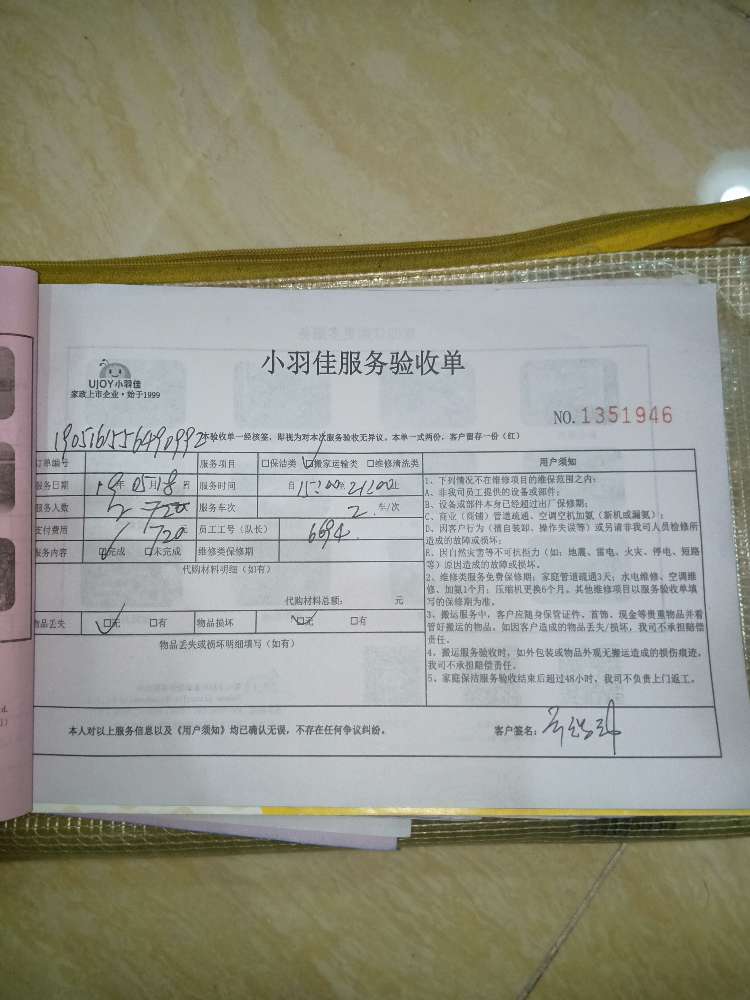 UJOY小羽佳
家政上市企业·始于1999
小羽佳服务验收单
NO.1351946
1905161556490992
本验收单一经核签，即视为对本次服务验收无异议。本单一式两份，客户留存一份（红）
订单编号 服务项目 □保洁类 □搬家运输类 □维修清洗类 用户须知
服务日期 19年05月18日 服务时间 自15:00至21:00止
服务人数 2 服务车次 2 车/次
支付费用 720 员工工号（队长） 6694
服务内容 □完成 □未完成 维修类保修期
代购材料明细（如有）
代购材料总额： 元
物品丢失 □无 □有 物品损坏 □无 □有
物品丢失或损坏明细填写（如有）
1、下列情况不在维修项目的维保范围之内：
A、非我司员工提供的设备或部件；
B、设备或部件本身已经超过出厂保修期；
C、商业（商铺）管道疏通、空调空机加氨（新机或漏氨）；
D、因客户行为（擅自装卸、操作失误等）或另请非我司人员检修所
造成的故障或损坏；
E、因自然灾害等不可抗拒力（如：地震、雷电、火灾、停电、短路
等）原因造成的故障或损坏。
2、维修类服务免费保修期：家庭管道疏通3天；水电维修、空调维
修、加氨1个月；压缩机更换6个月。其他维修项目以服务验收单填
写的保修期为准。
3、搬运服务中，客户应随身保管证件、首饰、现金等贵重物品并看
管好搬运的物品。如因客户造成的物品丢失/损坏，我司不承担赔偿
责任。
4、搬运服务验收时，如外包装或物品外观无搬运造成的损伤痕迹，
我司不承担赔偿责任。
5、家庭保洁服务验收结束后超过48小时，我司不负责上门返工。
本人对以上服务信息以及《用户须知》均已确认无误，不存在任何争议纠纷。 客户签名：